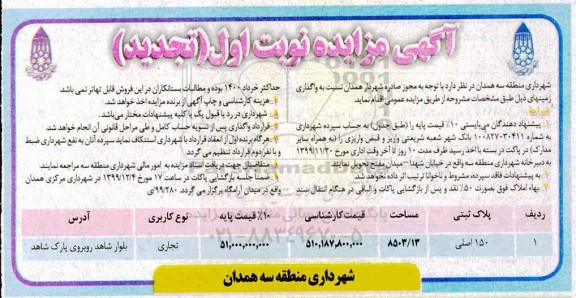 آگهی مزایده نوبت اول(تجدید)
شهرداری منطقه سه همدان در نظر دارد با توجه به مجوز صادره شهردار همدان نسبت به واگذاری
زمینهای ذیل طبق مشخصات مشروحه از طریق مزایده عمومی اقدام نماید.
شرایط
۱- پیشنهاد دهندگان می‌بایستی ۱۰٪ قیمت پایه را (طبق جدول) به حساب سپرده شهرداری
به شماره ۱۰۰۸۲۷۰۳۰۴۱۱ بانک شهر شعبه شریعتی واریز و فیض واریزی را (به همراه سایر
مدارک) در پاکت در بسته با اخذ رسید ظرف مدت ۱۰ روز تا آخر وقت اداری مورخ ۱۳۹۹/۱۱/۳۰
به دبیرخانه شهرداری منطقه سه واقع در خیابان شهدا – میدان عاشورا تحویل نمایند.
به پیشنهادات فاقد سپرده، مشروط و ناخوانا ترتیب اثر داده نخواهد شد.
بهاء املاک فوق بصورت ۵۰٪ نقد و پس از بازگشایی پاکات و الباقی در هنگام انتقال سند
حداکثر خرداد ۱۴۰۰ بوده و مطالبات بستانکاران در این فروش قابل تهاتر نمی باشد
هزینه کارشناسی و چاپ آگهی از برنده مزایده اخذ خواهد شد.
شهرداری در رد یا قبول یک یا کلیه پیشنهادات مختار می‌باشد.
قرارداد واگذاری پس از تسویه حساب کامل و طی مراحل قانونی آن انجام خواهد شد.
هرگاه برنده اول از انعقاد قرارداد با شهرداری استنکاف نماید سپرده آنان به نفع شهرداری ضبط
و با نفر دوم قرارداد تنظیم می گردد.
متقاضیان جهت دریافت اسناد مزایده به امور مالی شهرداری منطقه سه مراجعه نمایند.
ضمناً جلسه بازگشایی پاکات در ساعت ۱۷ مورخ ۱۳۹۹/۱۲/۴ در شهرداری مرکزی همدان
واقع در میدان آرامگاه برگزار می گردد. ۹۹/۲۸۰/ی
ردیف پلاک ثبتی مساحت قیمت کارشناسی ۱۰٪ قیمت پایه نوع کاربری آدرس
۱ ۱۵۰ اصلی ۸۵۰۳/۱۳ ۵۱۰,۱۸۷,۸۰۰,۰۰۰ ۵۱,۰۰۰,۰۰۰,۰۰۰ تجاری بلوار شاهد روبروی پارک شاهد
شهرداری منطقه سه همدان